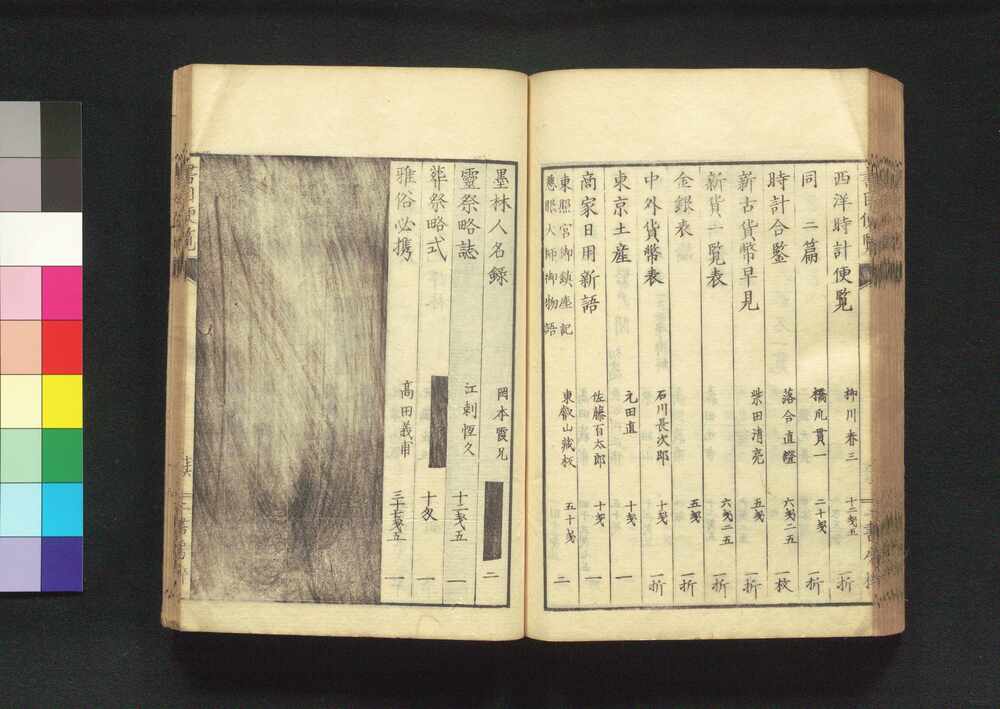 西洋時計便覧 柳川春三 十二匁五 一折
同 二篇 橘爪貫一 二十匁 一折
時計合鑒 落合直證 六匁二五 一枚
新古貨幣早見 柴田清亮 五匁 一折
新貨一覧表 六匁二五 一折
金銀表 五匁 一折
中外貨幣表 石川長次郎 十匁 一折
東京土産 元田直 十匁 一
商家日用新語 佐藤百太郎 十匁 一
東照宮御鎮座記
慈眼大師御物語 東叡山蔵板 五十匁 二
墨林人名録 岡本霞兄 二
靈祭略誌 江刺恆久 十二匁五 一
葬祭略式 十匁 一
雅俗必携 高田義甫 一
書目便覧